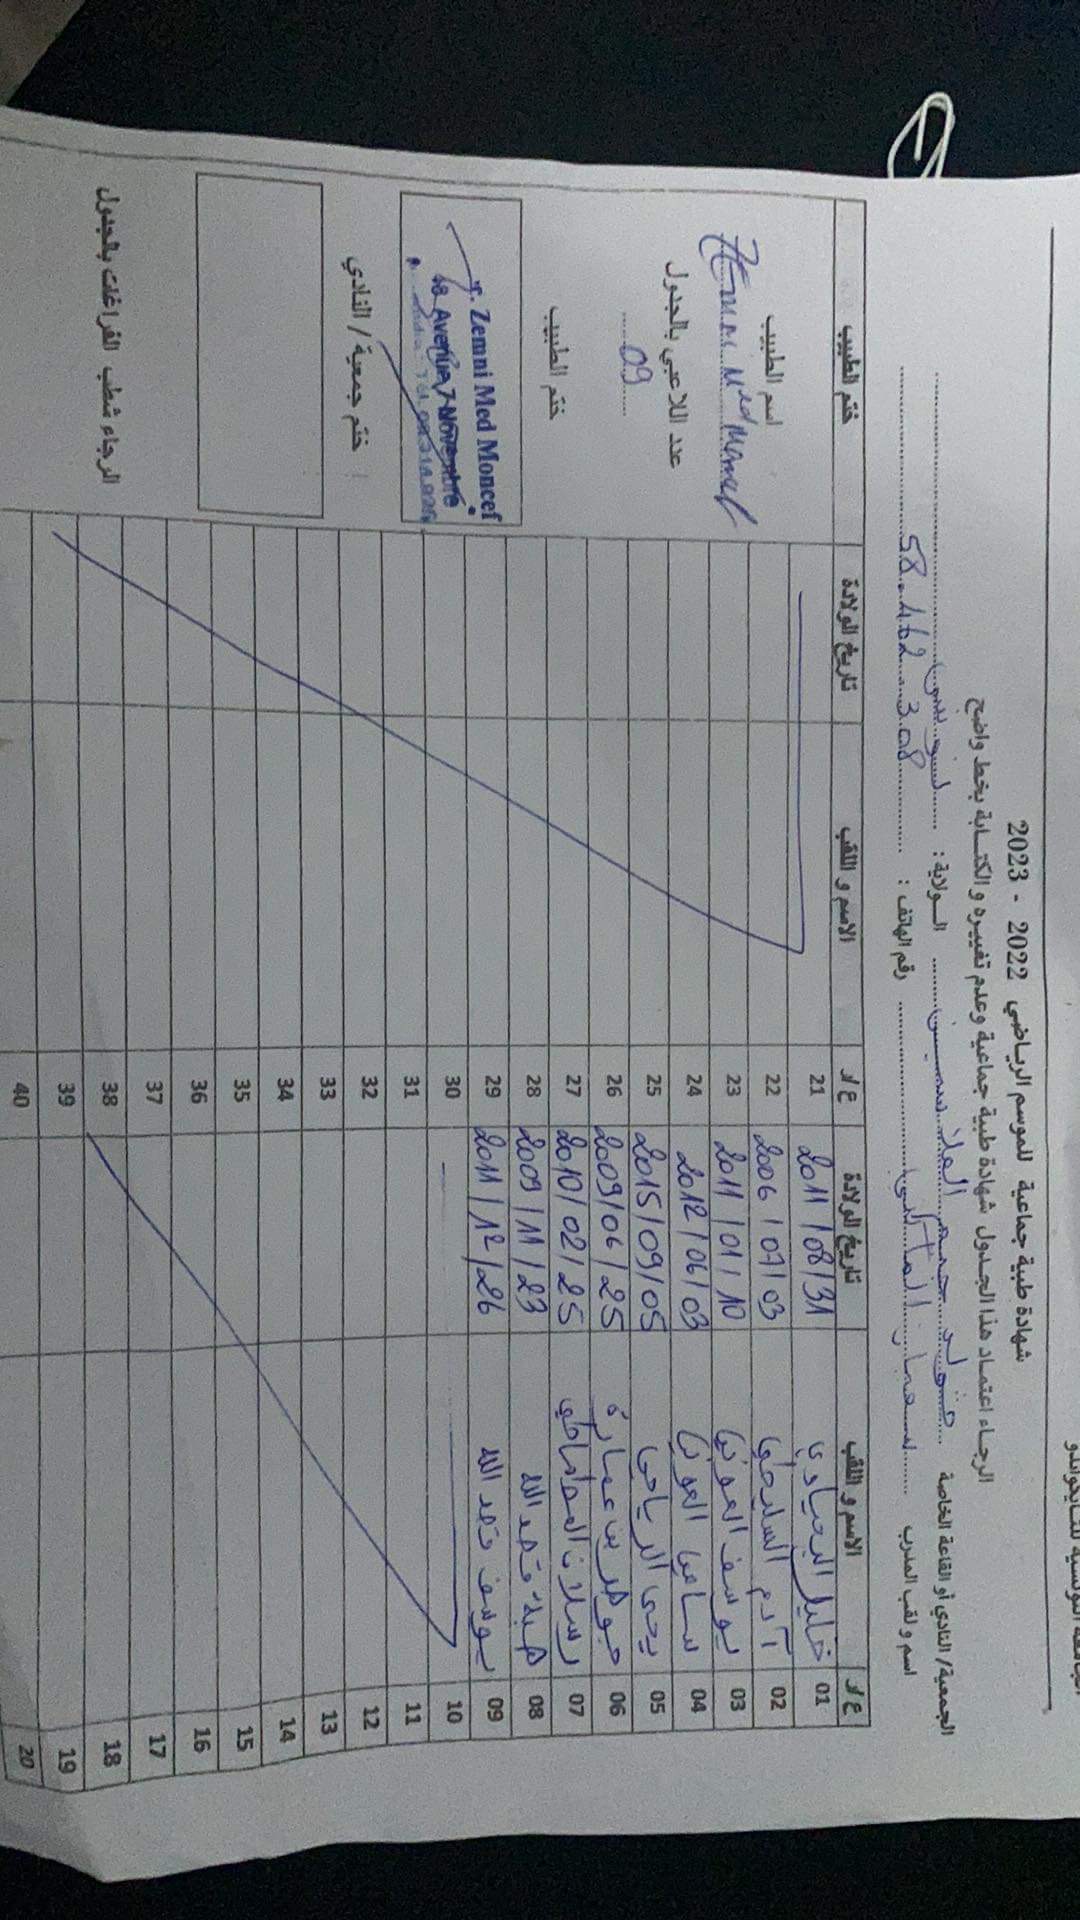 الجامعة التونسية للتايكواندو
شهادة طبية جماعية للموسم الرياضي 2022 - 2023
الرجاء اعتماد هذا الجدول شهادة طبية جماعية وعدم تغييره والكتابة بخط واضح
الجمعية/ النادي أو القاعة الخاصة
الولاية :
اسم ولقب المدرب
رقم الهاتف : 58.462.308
ع/ر الاسم و اللقب تاريخ الولادة ع/ر الاسم و اللقب تاريخ الولادة ختم الطبيب
01 خليل 2011/08/31 21
02 آدم 2006/07/03 22
03 يوسف العوني 2011/01/10 23
04 سامي العوني 2012/06/03 24
05 يحيى الرياحي 2015/09/05 25
06 جوهر بن عمارة 2009/06/25 26
07 رسلان 2010/02/25 27
08 هبة 2009/11/23 28
09 يوسف 2011/12/26 29
10 30
11 31
12 32
13 33
14 34
15 35
16 36
17 37
18 38
19 39
20 40
اسم الطبيب
Zemni Med Moncef
عدد اللاعبي بالجدول
09
ختم الطبيب
Zemni Med Moncef
48 Avenue 7 Novembre
ختم جمعية / النادي
الرجاء شطب الفراغات بالجدول